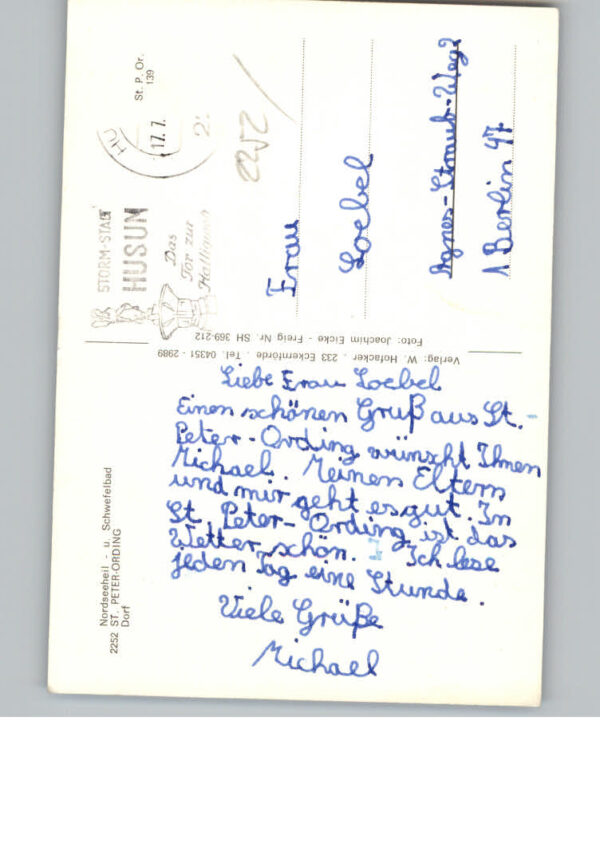 Nordseeheil - u. Schwefelbad
2252 ST. PETER-ORDING
Dorf
Liebe Frau Loebel
Einen schönen Gruß aus St.-
Peter-Ording wünscht Ihnen
Michael. Meinen Eltern
und mir geht es gut. In
St. Peter-Ording ist das
Wetter schön. Ich lese
jeden Tag eine Stunde.
Viele Grüße
Michael
Verlag: W. Hofacker . 233 Eckernförde . Tel. 04351 - 2989
Foto: Joachim Eicke - Freig Nr. SH 369-212
STORM-STADT
HUSUM
Das
Tor zur
HU
17.7.
St. P. Or.
139
2252
Frau
Loebel
Agnes-Straub-Weg
1 Berlin 47